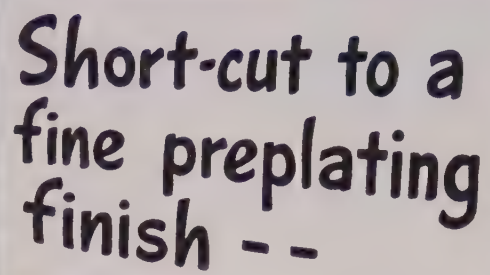 Short-cut to a
fine preplating
finish --